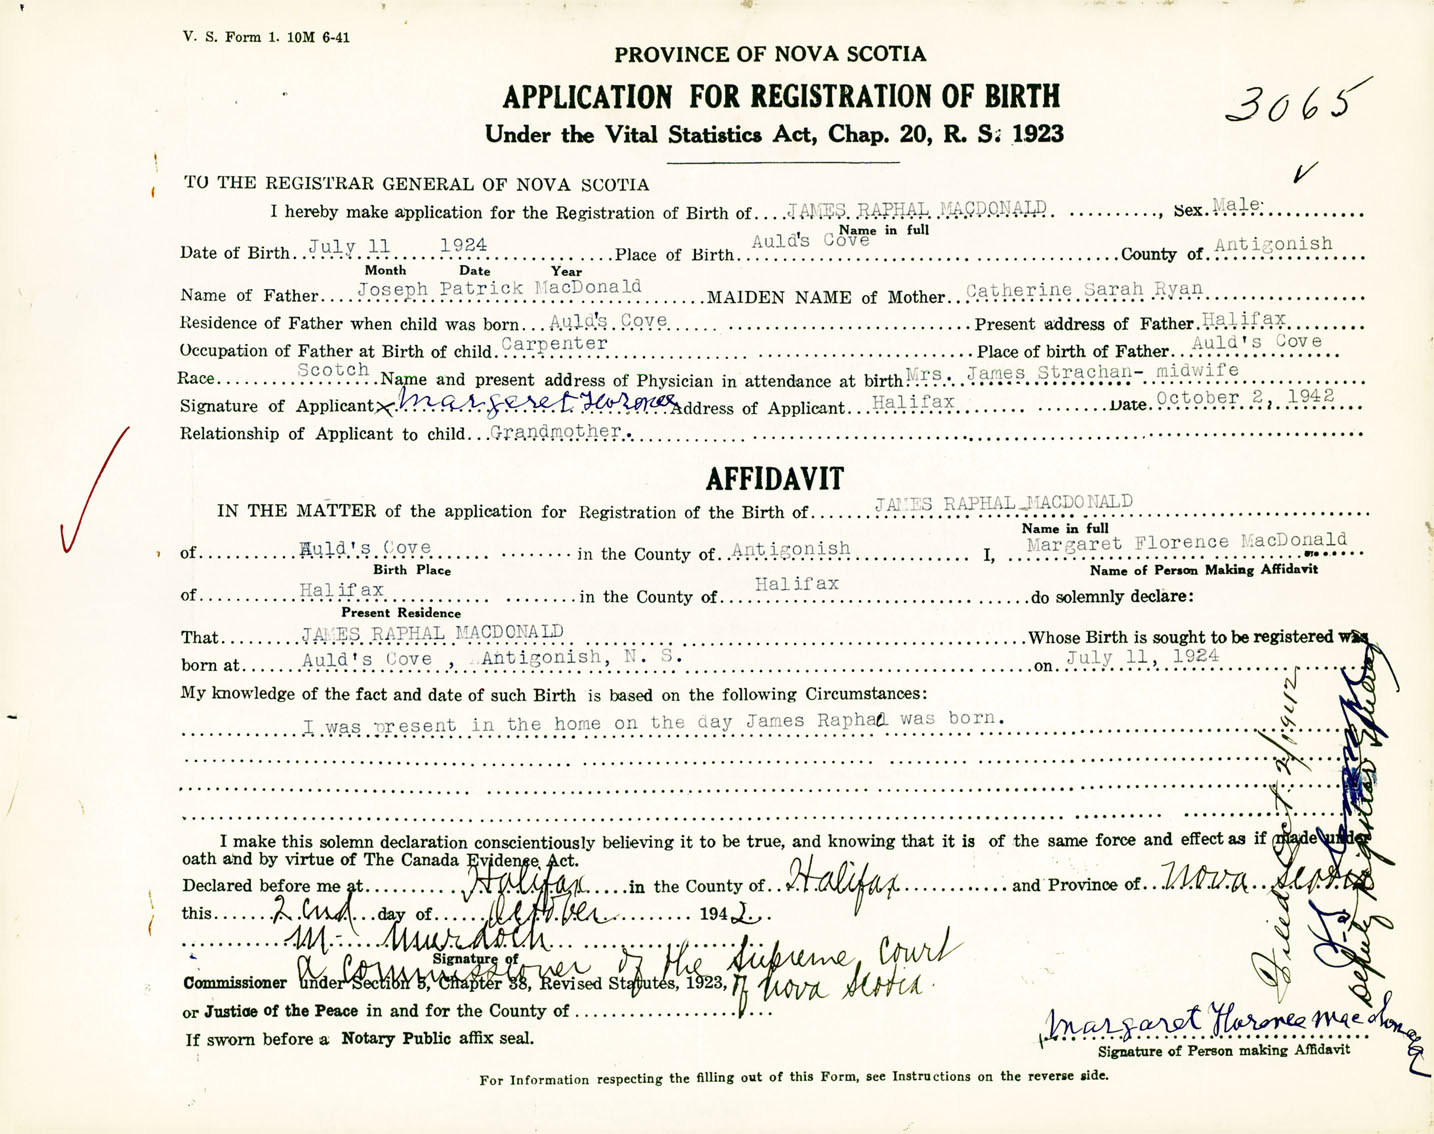 V. S. Form 1. 10M 6-41
PROVINCE OF NOVA SCOTIA
APPLICATION FOR REGISTRATION OF BIRTH
3065
Under the Vital Statistics Act, Chap. 20, R. S. 1923
TO THE REGISTRAR GENERAL OF NOVA SCOTIA
I hereby make application for the Registration of Birth of....JAMES RAPHAL MACDONALD.........., Sex.Male
Name in full
Date of Birth..July 11 1924..........Place of Birth..Auld's Cove..........County of.Antigonish
Month Date Year
Name of Father....Joseph Patrick MacDonald.......MAIDEN NAME of Mother..Catherine Sarah Ryan
Residence of Father when child was born...Auld's Cove..........Present address of Father.Halifax
Occupation of Father at Birth of child.Carpenter..........Place of birth of Father...Auld's Cove
Race........Scotch.Name and present address of Physician in attendance at birth Mrs. James Strachan- midwife
Signature of Applicant x Margaret Florence Address of Applicant...Halifax..........Date October 2, 1942
Relationship of Applicant to child...Grandmother.
AFFIDAVIT
IN THE MATTER of the application for Registration of the Birth of......JAMES RAPHAL MACDONALD
Name in full
of..........Auld's Cove..........in the County of.Antigonish I, Margaret Florence MacDonald
Birth Place Name of Person Making Affidavit
of..........Halifax..........in the County of...Halifax..........do solemnly declare:
Present Residence
That........JAMES RAPHAL MACDONALD..........Whose Birth is sought to be registered was
born at......Auld's Cove , Antigonish, N. S...........on July 11, 1924
My knowledge of the fact and date of such Birth is based on the following Circumstances:
I was present in the home on the day James Raphael was born.
I make this solemn declaration conscientiously believing it to be true, and knowing that it is of the same force and effect as if made under
oath and by virtue of The Canada Evidence Act.
Declared before me at..........Halifax.....in the County of..Halifax..........and Province of...Nova Scotia
this......2nd...day of......October..........1942..
M. Murdoch
Signature of
a commissioner of the Supreme Court
Commissioner under Section 5, Chapter 38, Revised Statutes, 1923, of Nova Scotia.
or Justice of the Peace in and for the County of
If sworn before a Notary Public affix seal.
Margaret Florence MacDonald
Signature of Person making Affidavit
For Information respecting the filling out of this Form, see Instructions on the reverse side.
Filed Oct. 2/1942
Deputy Registrar General